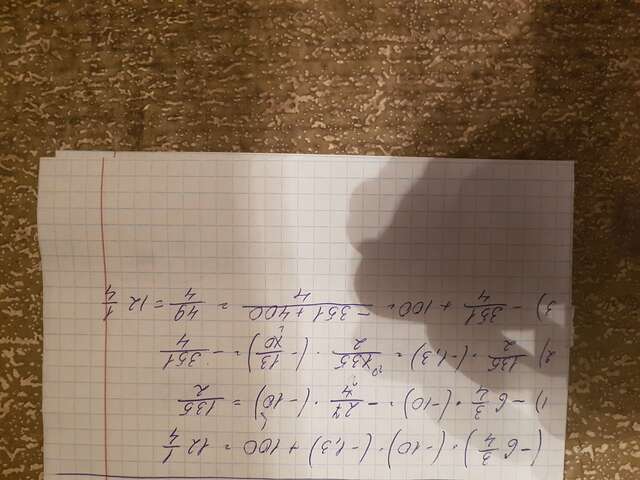 (-6 3/4) · (-10) · (-1,3) + 100 = 12 1/4
1) -6 3/4 · (-10) = - 27/4 · (-10) = 135/2
2) 135/2 · (-1,3) = 135/2 · (- 13/10) = - 351/4
3) - 351/4 + 100 = (-351 + 400)/4 = 49/4 = 12 1/4